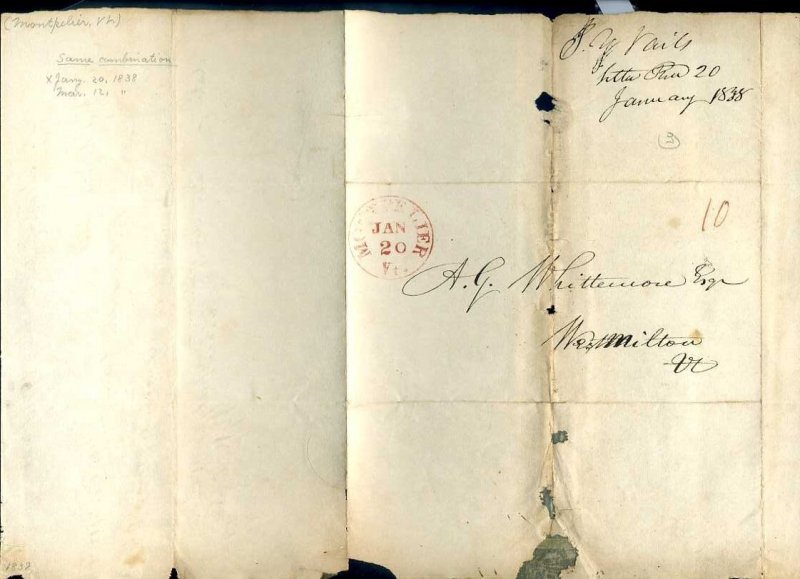 (Montpelier, Vt.)
Same combination
x Jany. 20, 1838
Mar. 12, "
1838
20
January 1838
(2)
MONTPELIER
JAN
20
Vt.
10
A. G. Whittemore Esqr
West Milton
Vt